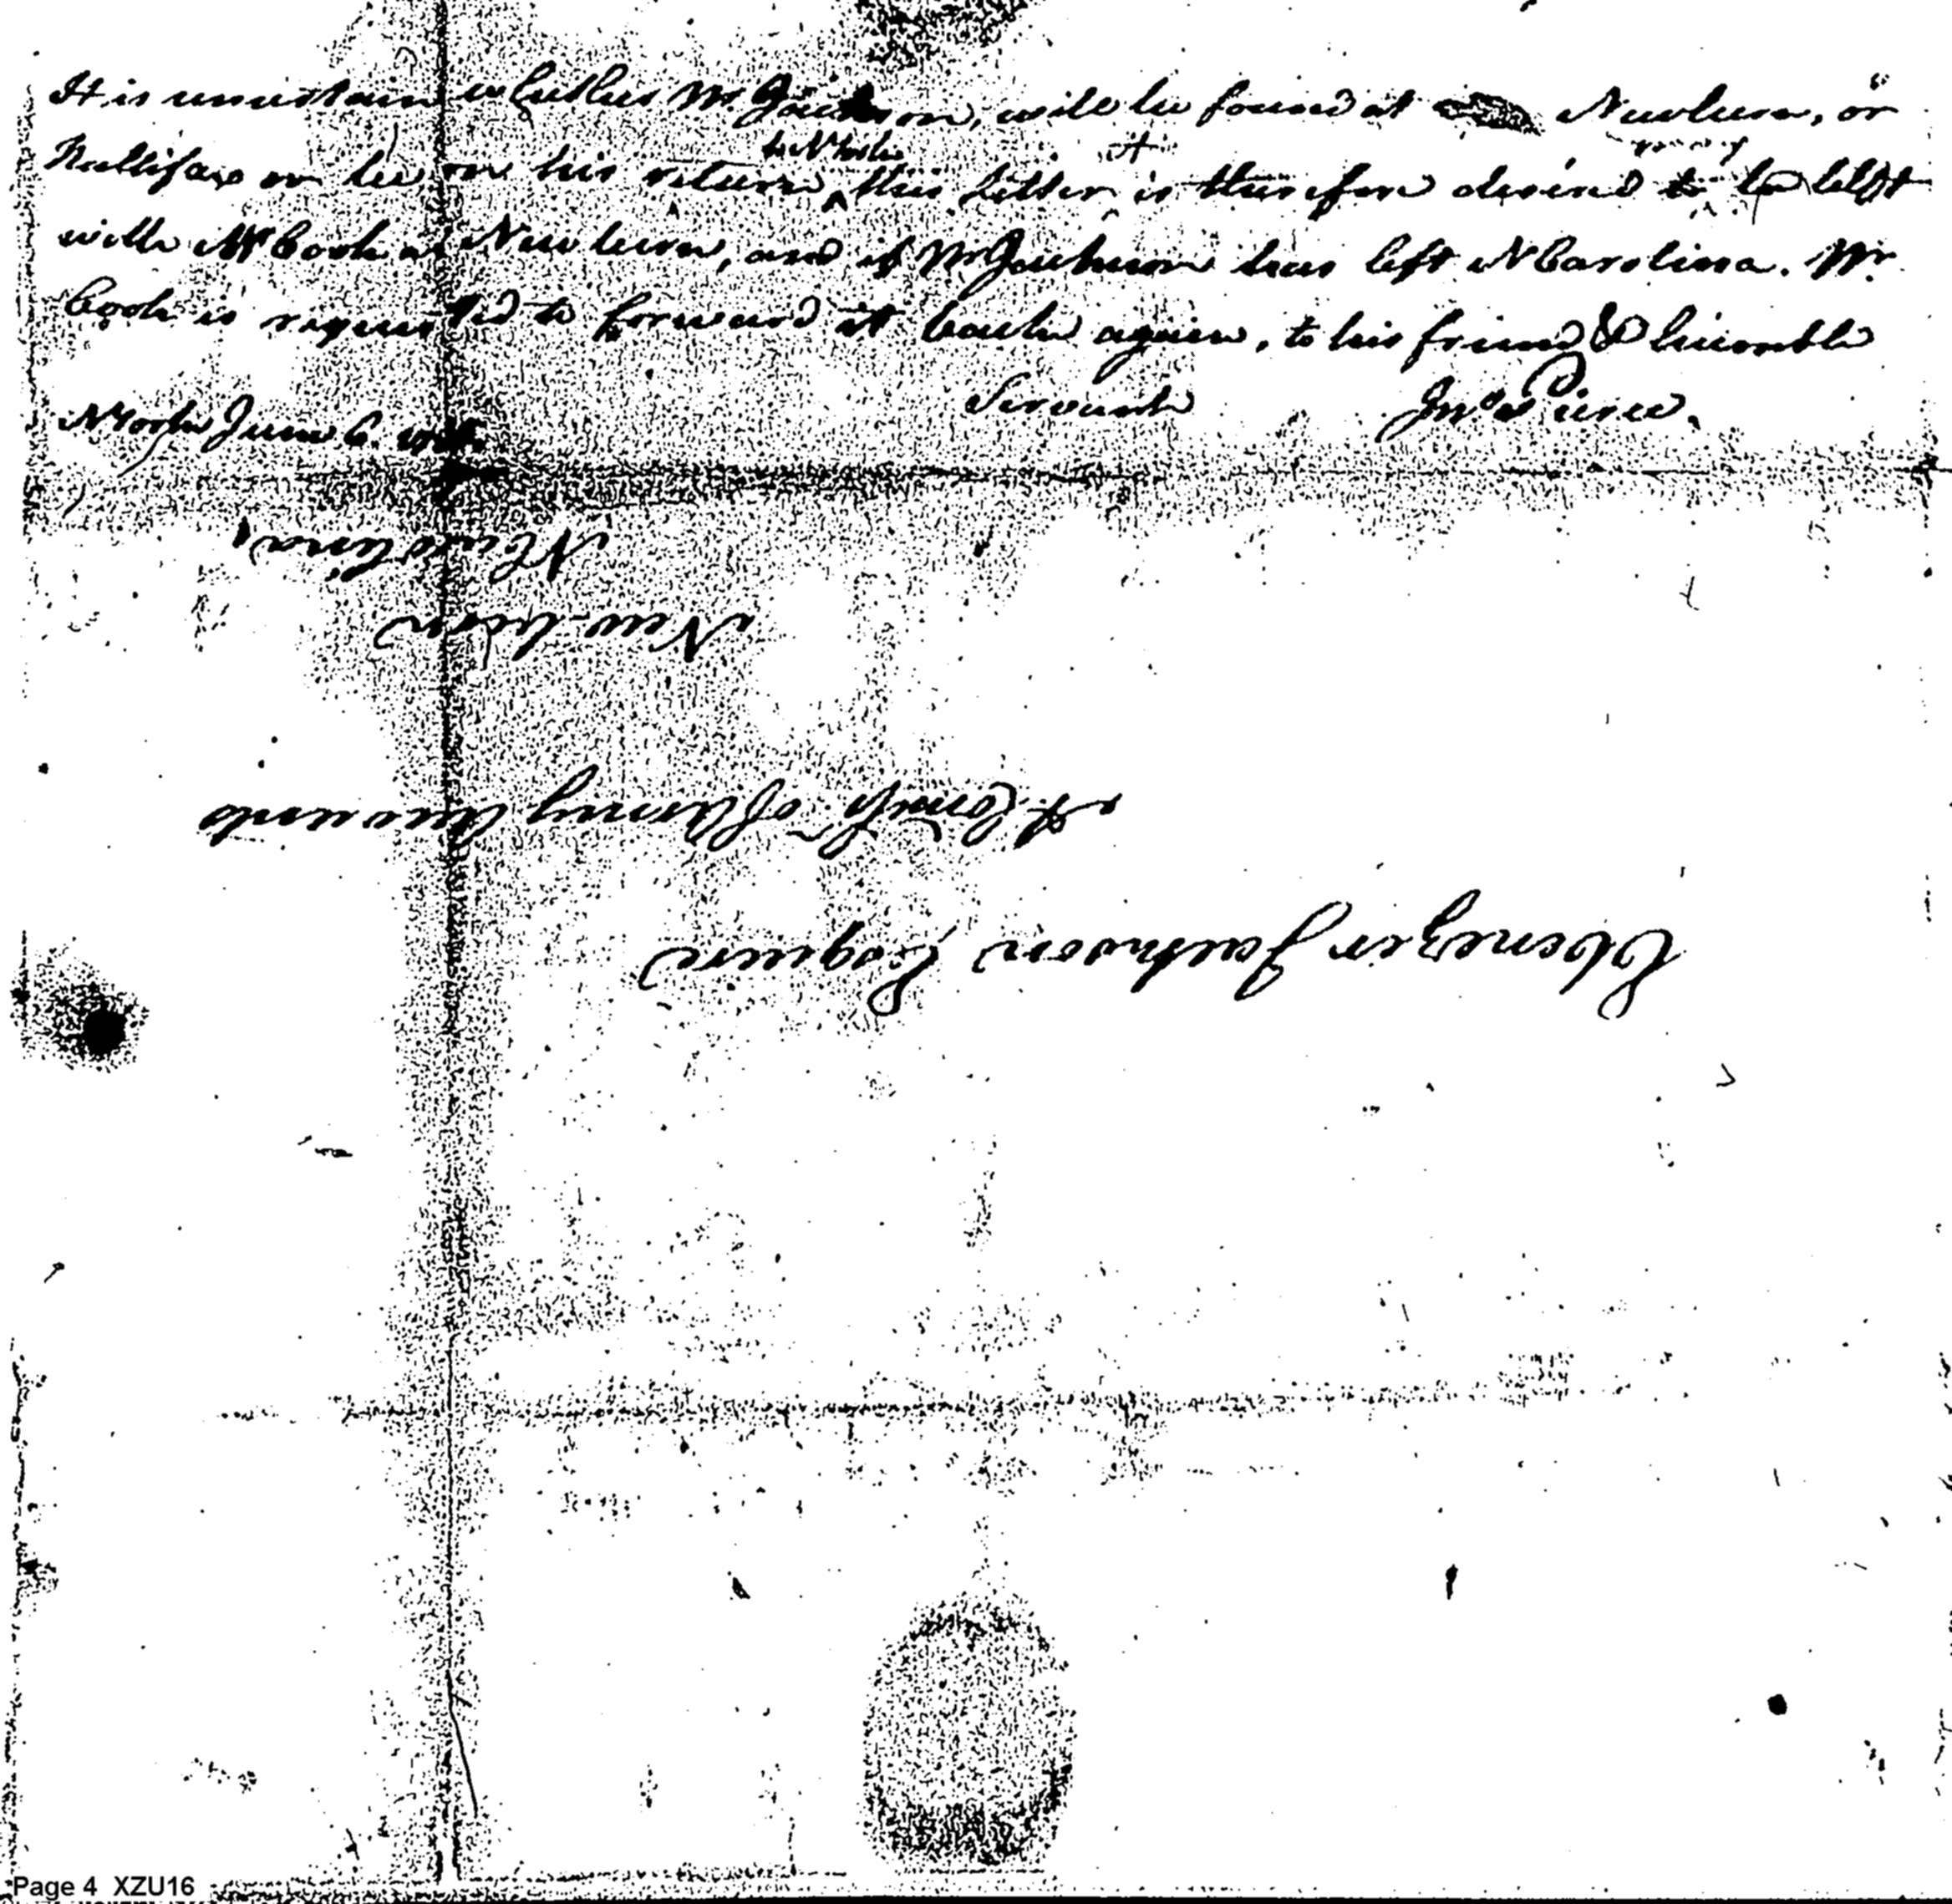 It is uncertain whether Mr. Jackson, will be found at Newbern, or
Hallifax or be on his return to NYork this Letter is therefore desired to be left
with Mr Cook at Newbern, and if Mr Jackson has left NCarolina. Mr.
Cook is requested to forward it back again, to his friend & humble
Servant Jno Pierce.
NYork June 6.
Ebenezer Jackson Esquire
A. Comr. of Army Accounts
New-bern
NCarolina,
Page 4 XZU16